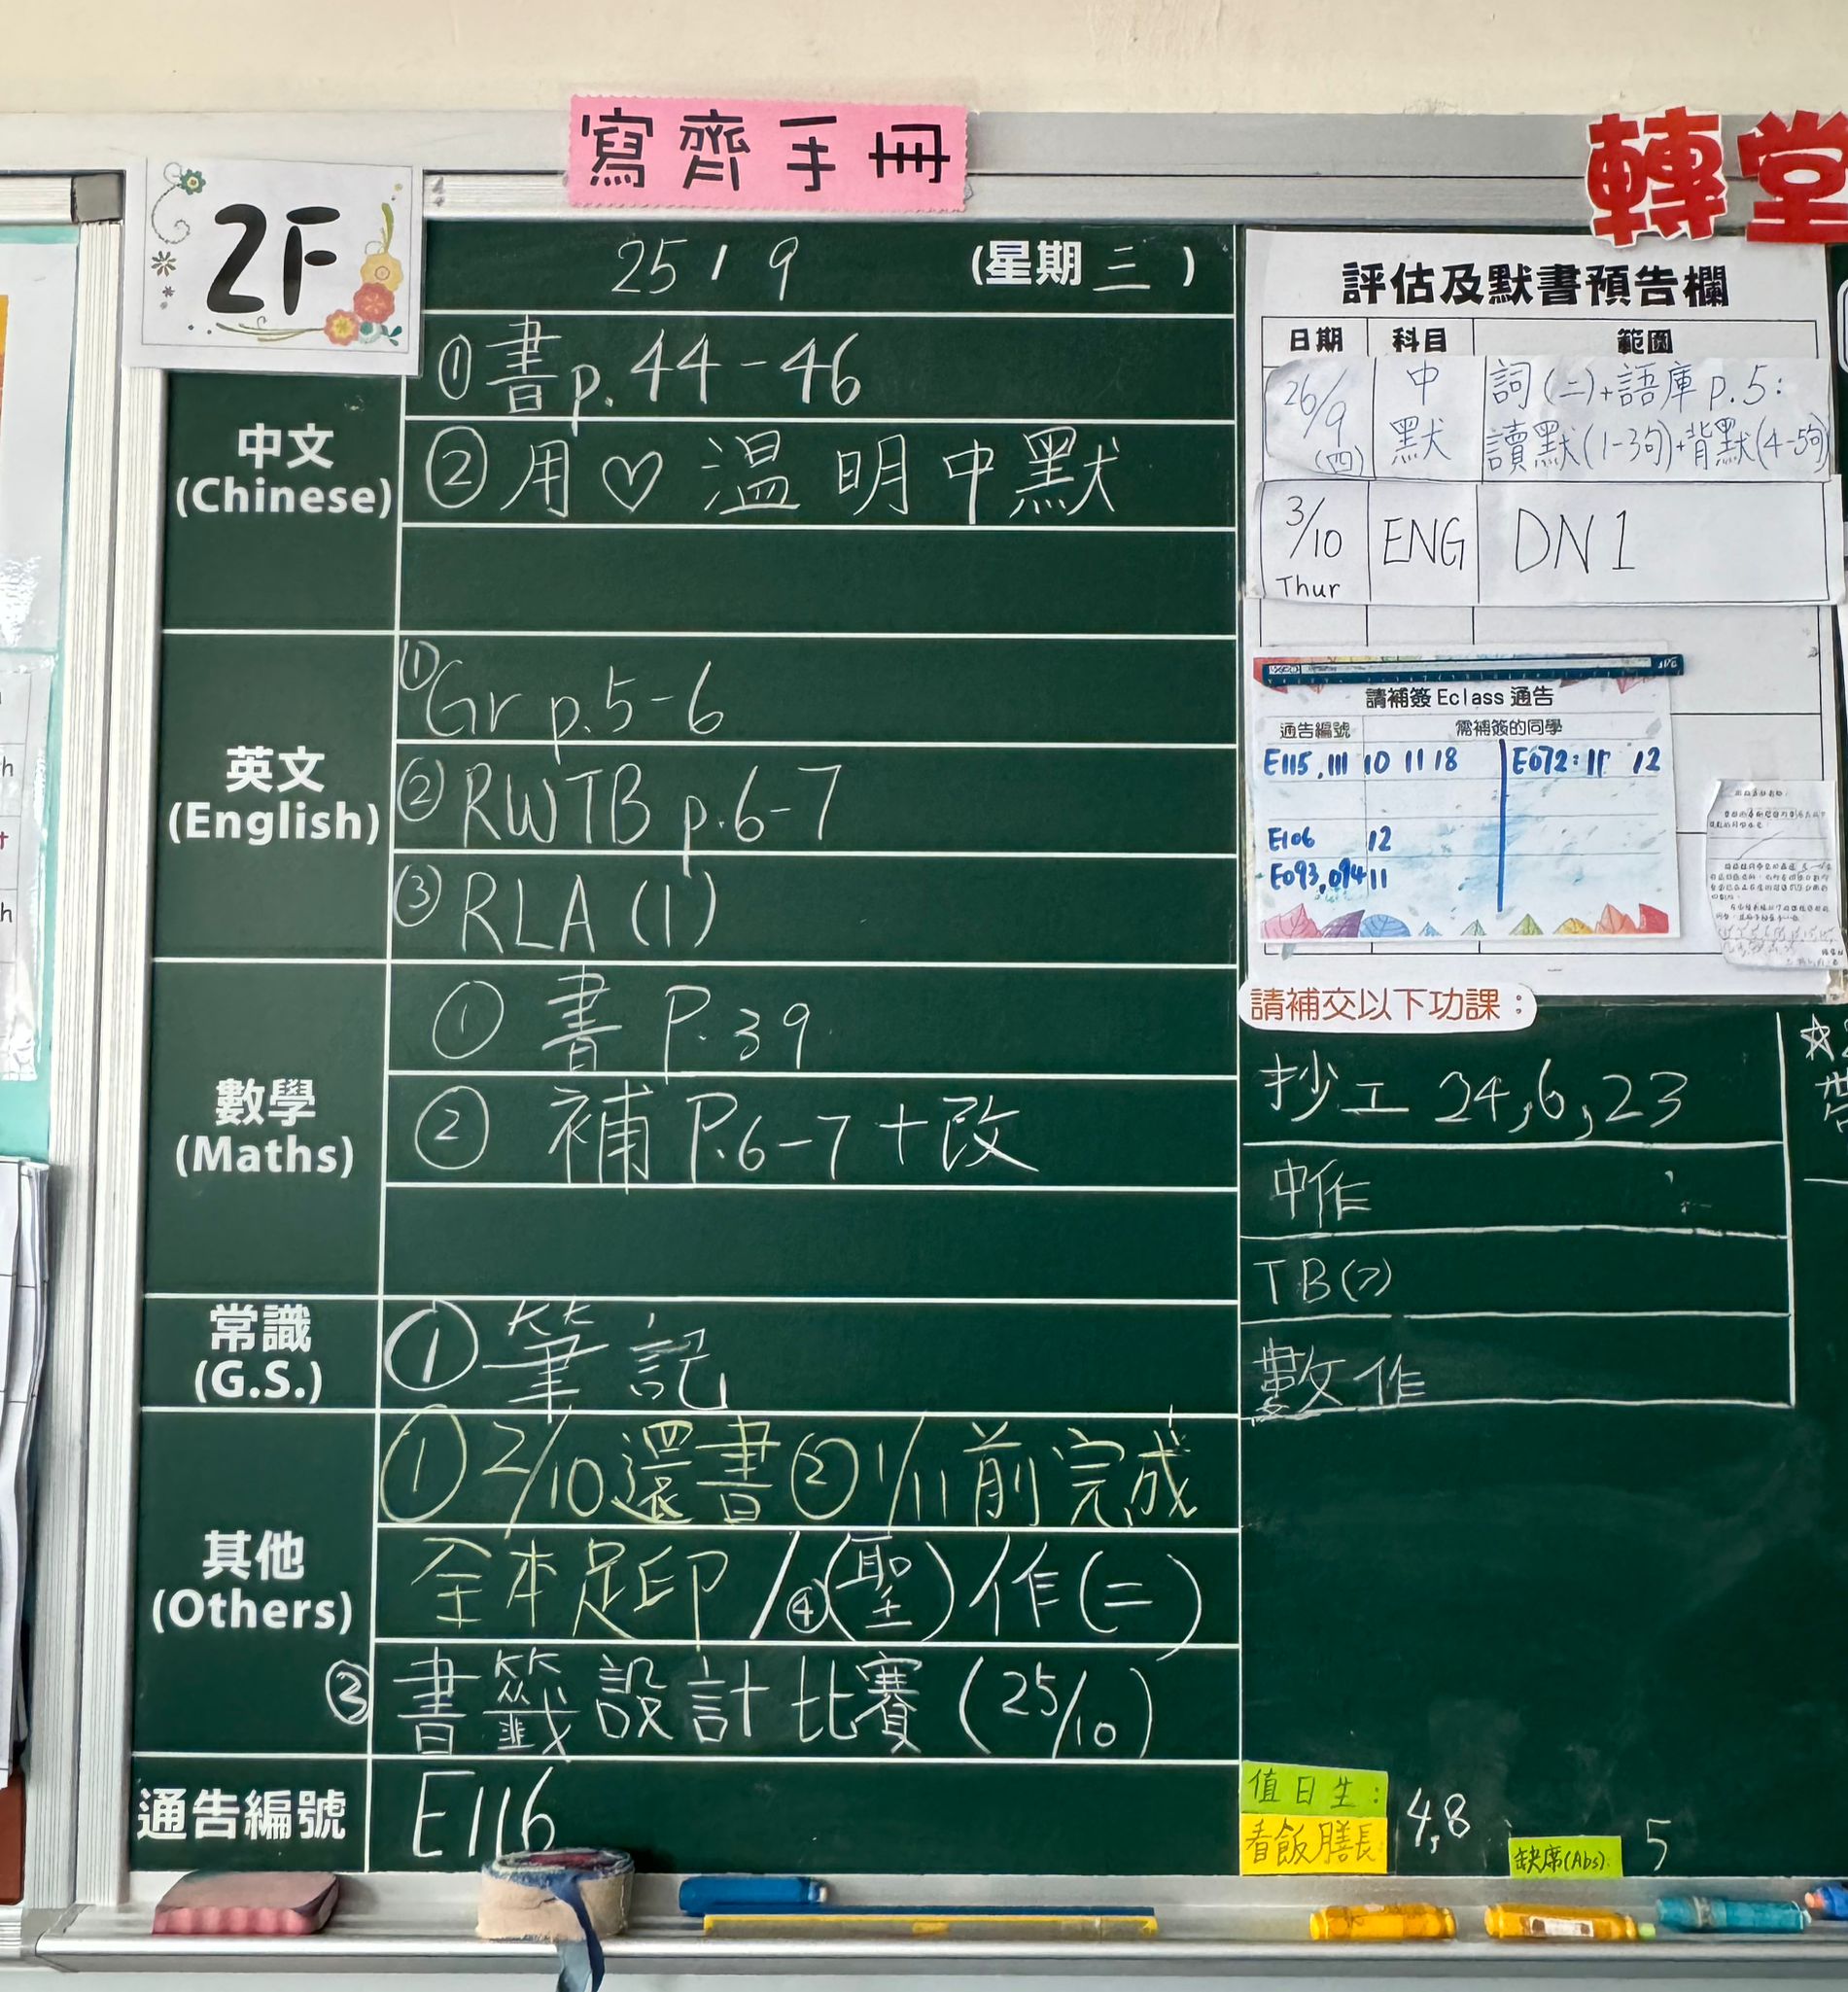 寫齊手冊
轉堂
2F
25/9 (星期三)
中文
(Chinese)
①書p.44-46
②用♡溫明中默
英文
(English)
①Gr p.5-6
②RWTB p.6-7
③RLA (1)
數學
(Maths)
① 書 P.39
② 補 P.6-7+改
常識
(G.S.)
①筆記
其他
(Others)
①2/10還書②1/11前完成
全本足印/④(聖)作(二)
③書籤設計比賽(25/10)
通告編號
E116
評估及默書預告欄
日期 科目 範圍
26/9 (四) 中默 詞(二)+語庫p.5:
讀默(1-3句)+背默(4-5句)
3/10 Thur ENG DN1
請補簽 Eclass 通告
通告編號 需補簽的同學
E115,111 10 11 18 E072:11 12
E106 12
E093,094 11
請補交以下功課:
抄工 24,6,23
中作
TB(7)
數作
值日生:
看飯膳長 4,8
缺席(Abs) 5